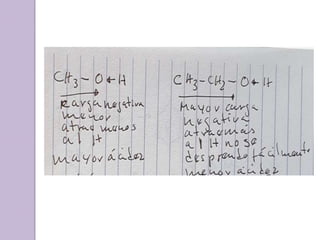 CH3 – O ← H
carga negativa
menor
atrae menos
al H
mayor ácidez
CH3 – CH2 – O ← H
Mayor carga
negativa
atrae más
al H no se
desprende fácilmente
menor ácidez